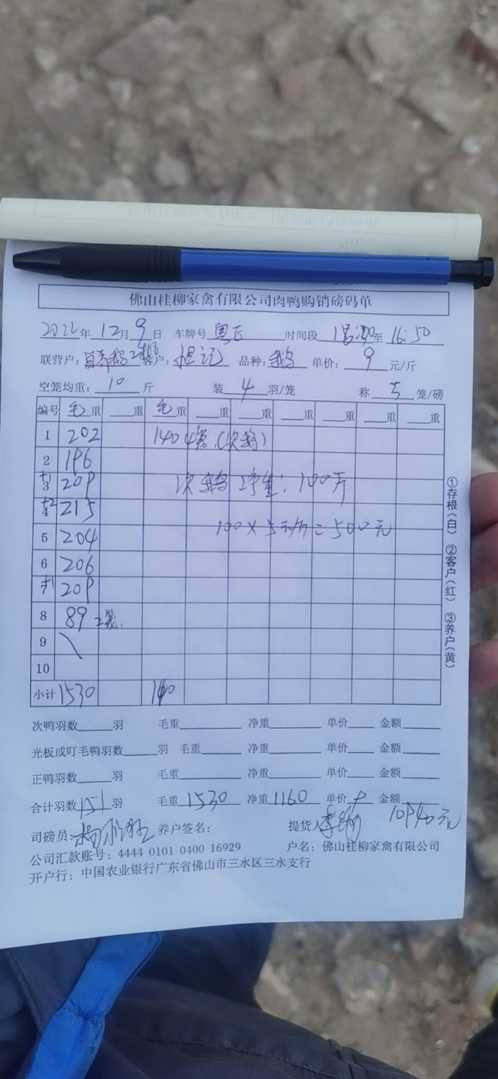 佛山桂柳家禽有限公司肉鸭购销磅码单
2022年 12月 9日 车牌号 时间段 至 16:50
联营户: 客户: 品种: 单价: 9 元/斤
空笼均重: 10 斤 装 4 羽/笼 称 5 笼/磅
编号 毛重 重 毛重 重 重 重 重 重 重
1 202 140 4笼
2 196
3 209 100斤
215 100×5元/斤=500元
5 204
6 206
209
8 89 2笼
9
10
小计 1530 140
①存根(白) ②客户(红) ③养户(黄)
次鸭羽数 羽 毛重 净重 单价 金额
光板或叮毛鸭羽数 羽 毛重 净重 单价 金额
正鸭羽数 羽 毛重 净重 单价 金额
合计羽数 151 羽 毛重 1530 净重 1160 单价 金额 10940元
司磅员 养户签名: 提货人
公司汇款账号: 4444 0101 0400 16929 户名: 佛山桂柳家禽有限公司
开户行: 中国农业银行广东省佛山市三水区三水支行